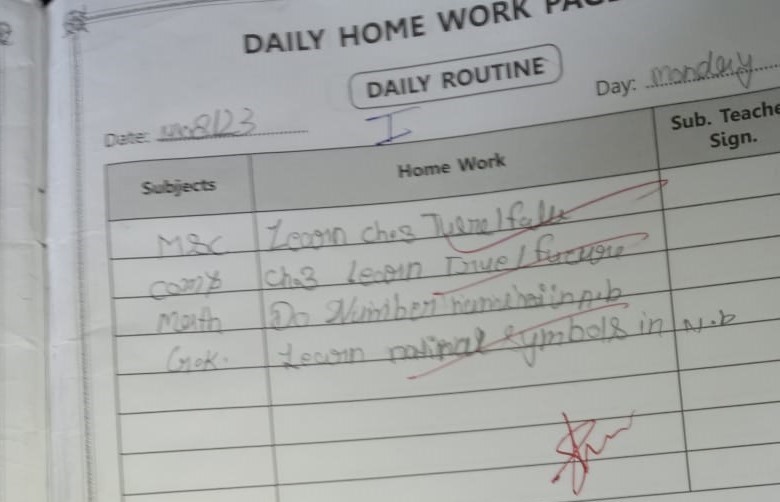 DAILY HOME WORK
DAILY ROUTINE
Day: monday
Date: 8/23
I
Subjects
Home Work
Sub. Teache
Sign.
M&C Learn ch.3 True/fals
comp ch.3 learn True/
Math Do Number name in n.b
G.K. Learn national symbols in N.b